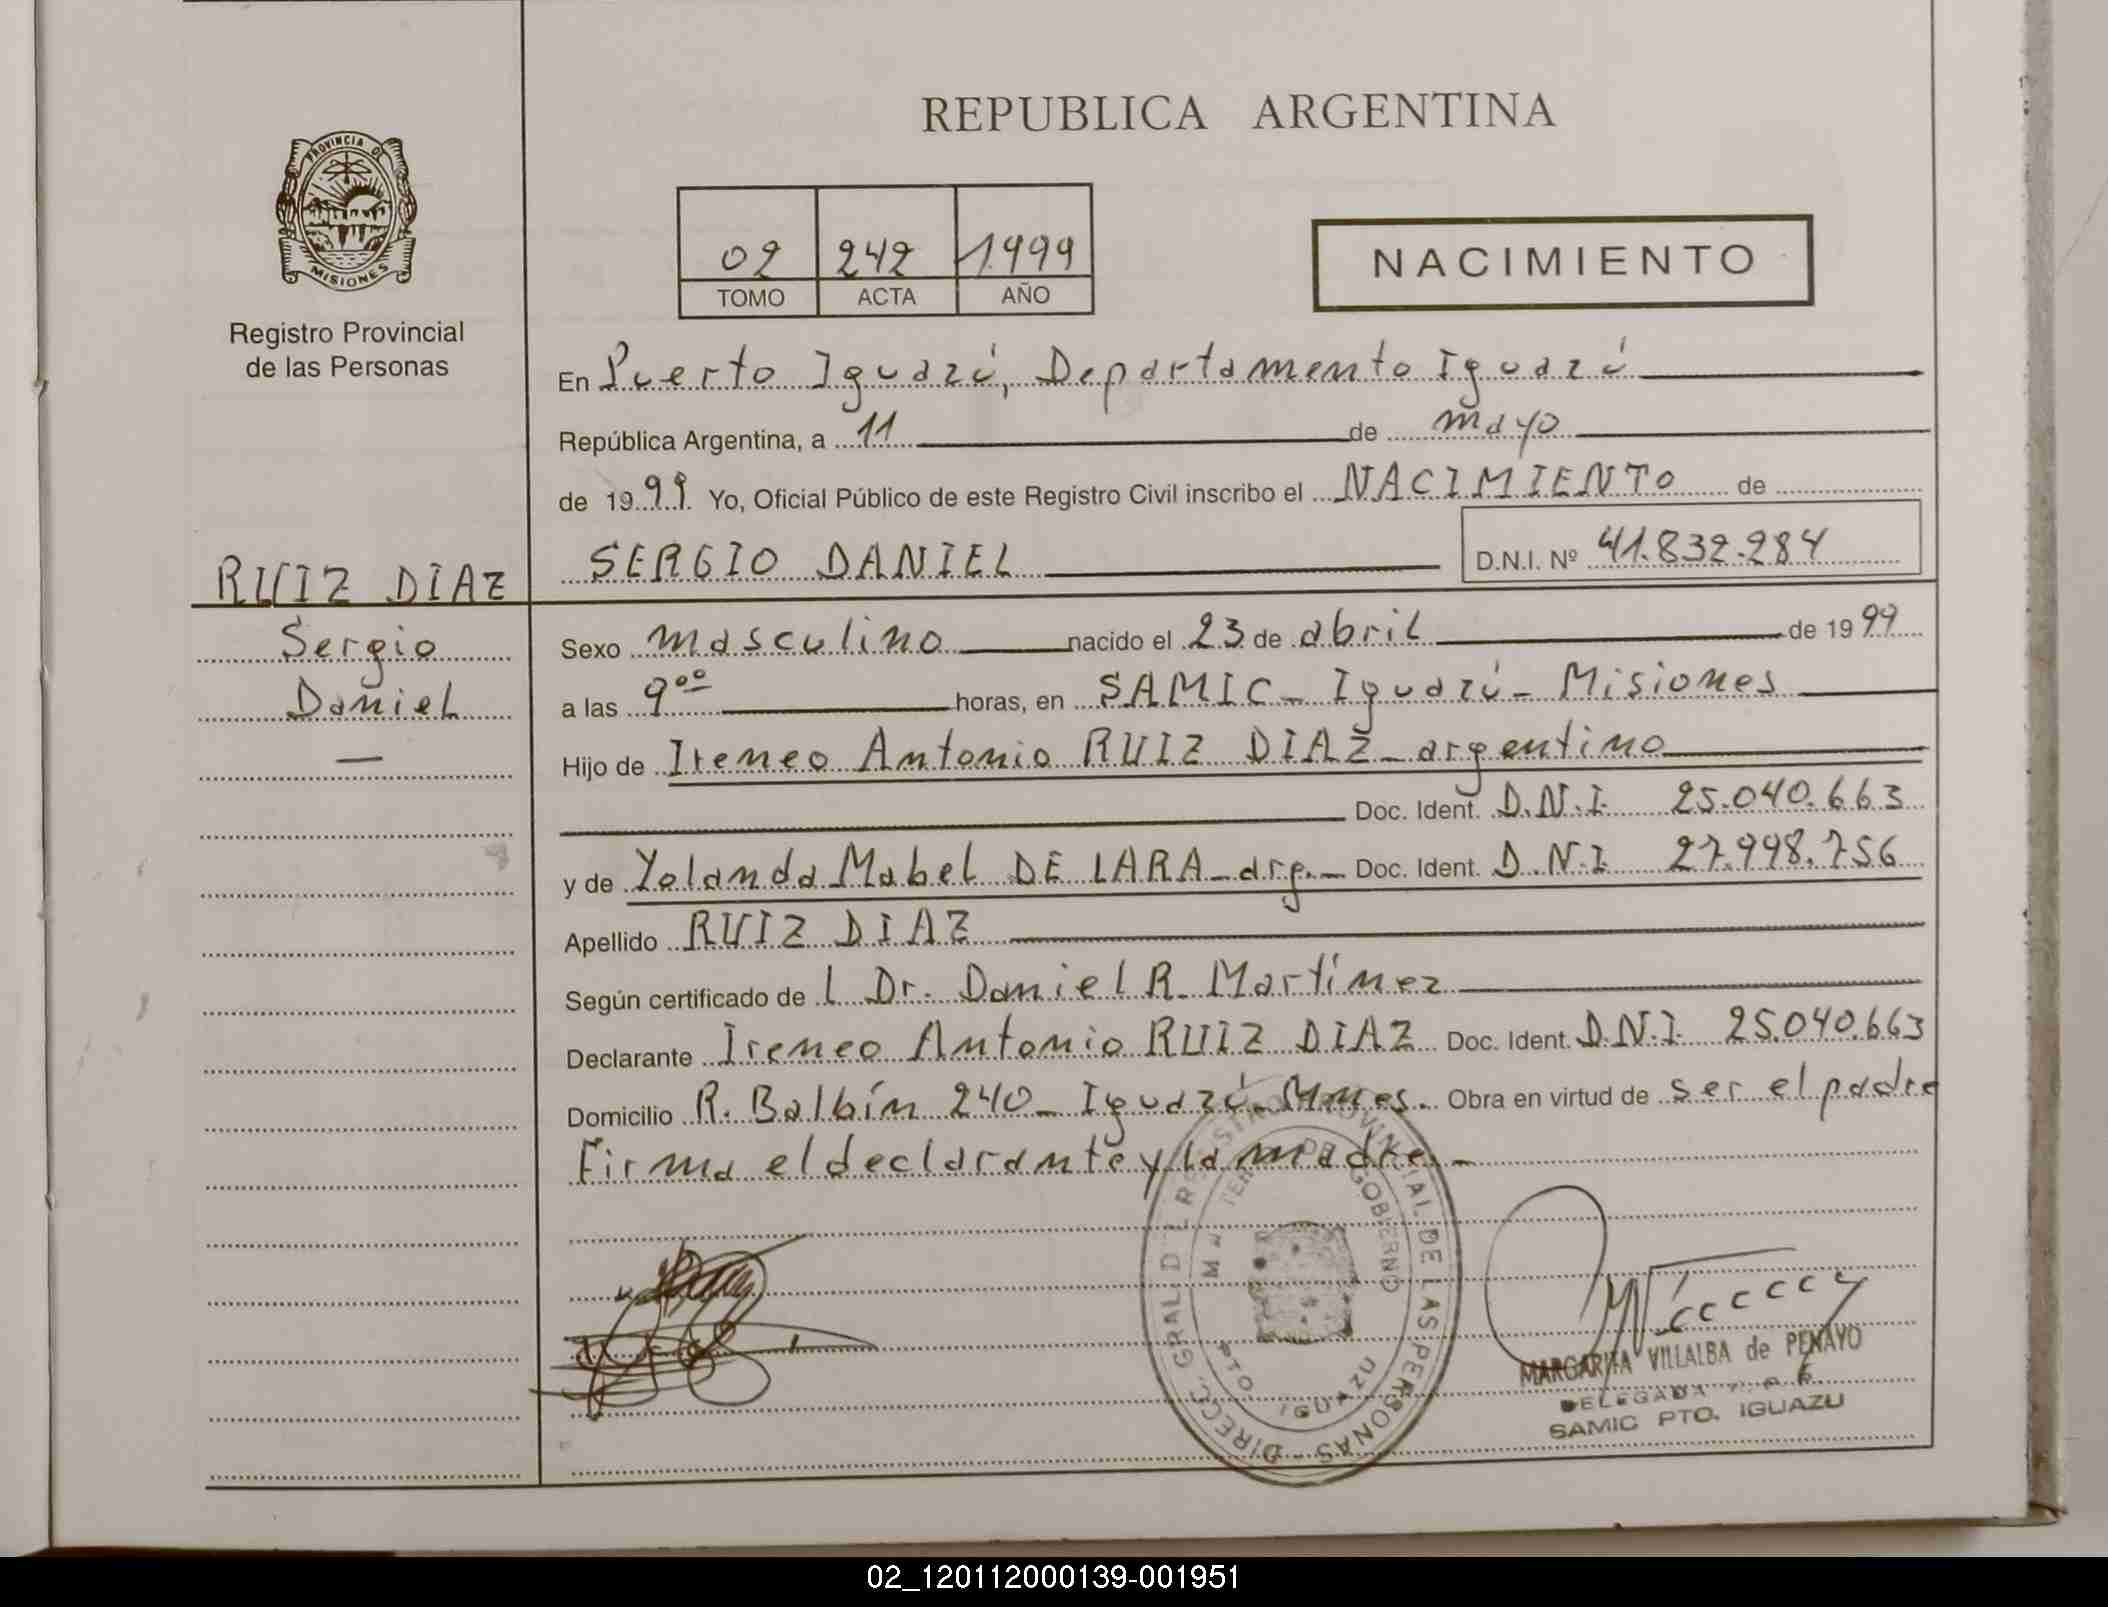 REPUBLICA ARGENTINA
PROVINCIA DE
MISIONES
Registro Provincial
de las Personas
02 242 1999
TOMO ACTA AÑO
NACIMIENTO
En Puerto Iguazú, Departamento Iguazú
República Argentina, a 11 de mayo
de 1999. Yo, Oficial Público de este Registro Civil inscribo el NACIMIENTO de
RUIZ DIAZ
Sergio
Daniel
—
SERGIO DANIEL D.N.I. Nº 41.832.284
Sexo masculino nacido el 23 de abril de 1999
a las 9⁰⁰ horas, en SAMIC - Iguazú - Misiones
Hijo de Ireneo Antonio RUIZ DIAZ - argentino
Doc. Ident. D.N.I. 25.040.663
y de Yolanda Mabel DE LARA - arg. - Doc. Ident. D.N.I 27.998.756
Apellido RUIZ DIAZ
Según certificado de l Dr. Daniel R. Martínez
Declarante Ireneo Antonio RUIZ DIAZ Doc. Ident. D.N.I. 25.040.663
Domicilio R. Balbín 240 - Iguazú - Mnes. Obra en virtud de ser el padre
Firma el declarante y la madre. -
DIRECC. GRAL D REGISTRO PROVINCIAL DE LAS PERSONAS
DE GOBERNO
PTO IGUAZU
MARGARITA VILLALBA de PENAYO
DELEGADA
SAMIC PTO. IGUAZU
02_120112000139-001951